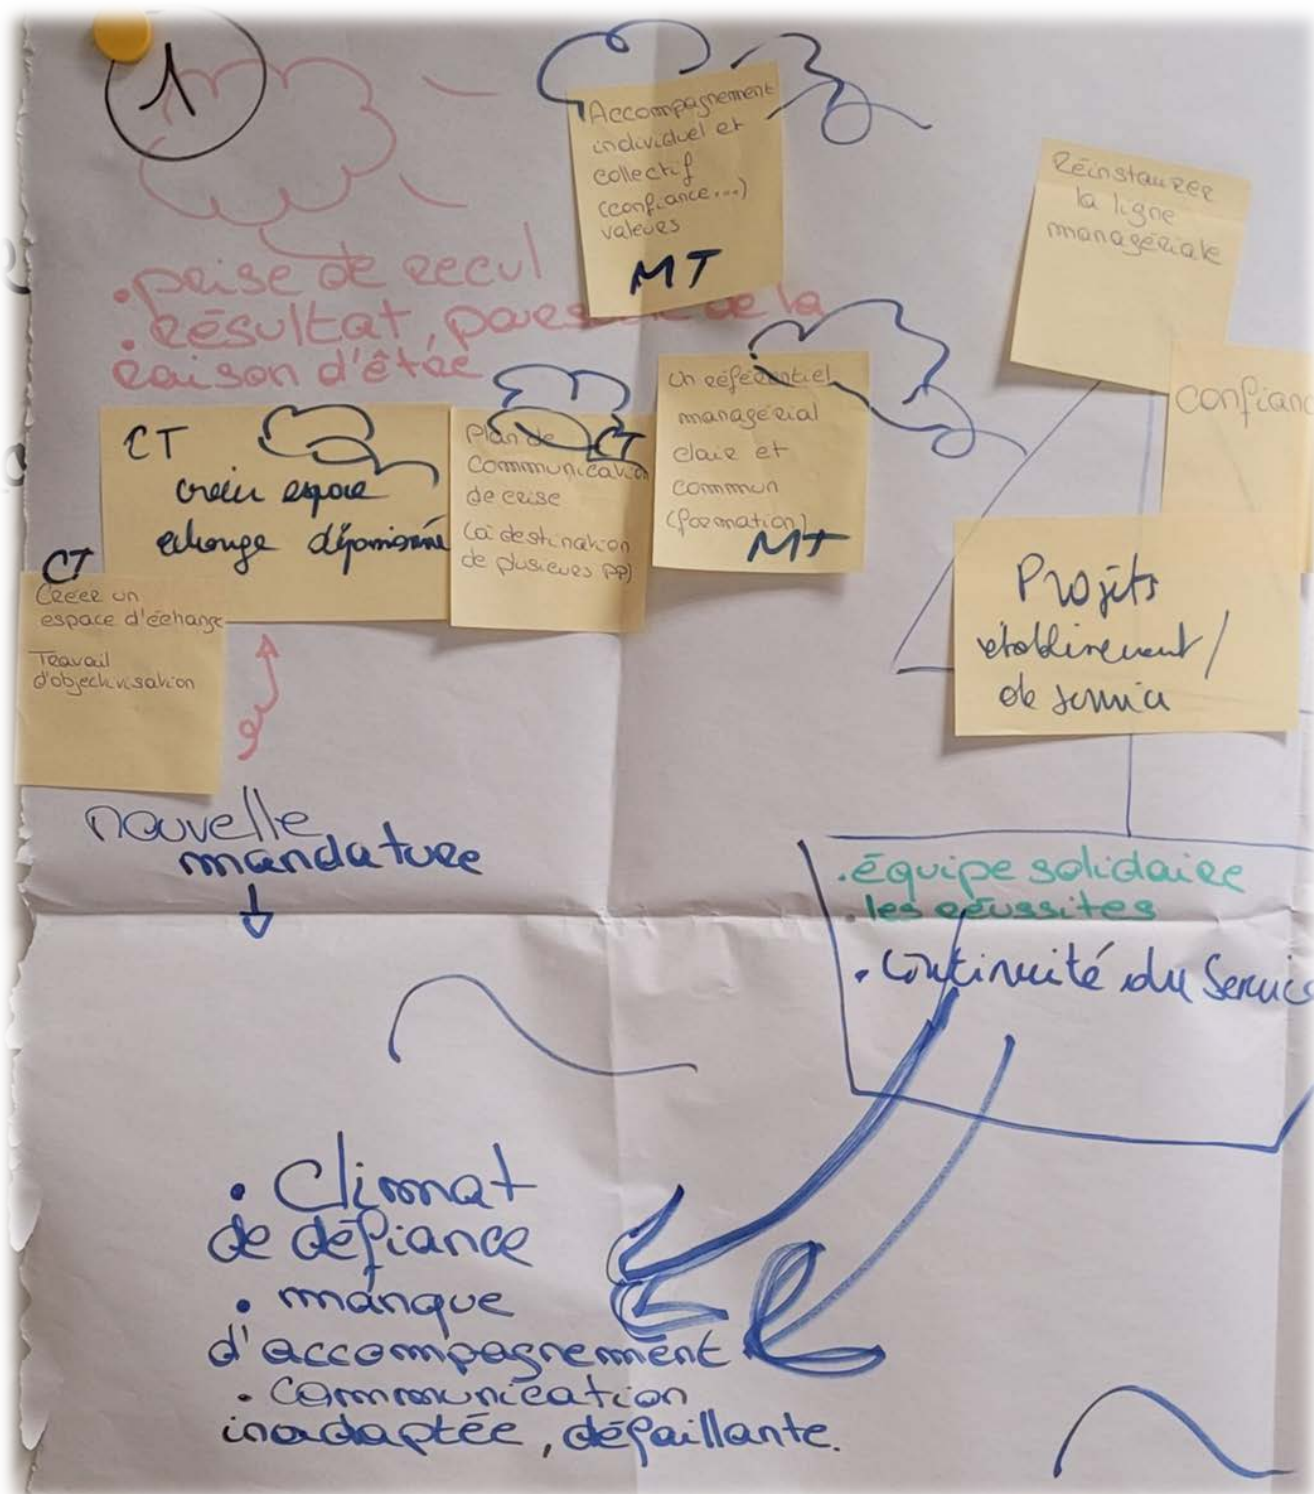 1
Accompagnement
individuel et
collectif
(confiance...)
valeurs
MT
Réinstaurer
la ligne
managériale
. prise de recul
. résultat, de la
raison d'être
confianc
CT
créer espace
échange dépassionné
Plan de CT
communication
de crise
(à destination
de plusieurs pp)
Un référentiel
managérial
clair et
commun
(formation)
MT
Projets
établissement /
de service
CT
Créer un
espace d'échange
Travail
d'objectivisation
nouvelle
mandature
. équipe solidaire
. les réussites
. Continuité du Servic
. Climat
de défiance
. manque
d'accompagnement
. Communication
inadaptée, défaillante.